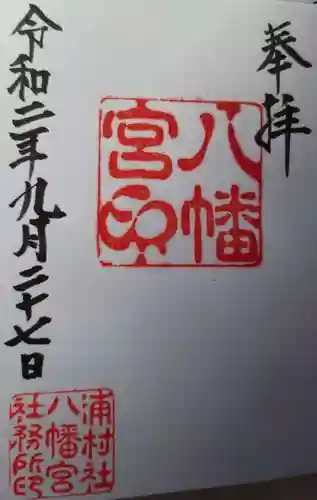 奉拝
八幡
宮印
令和二年九月二十七日
浦村社
八幡宮
社務所印